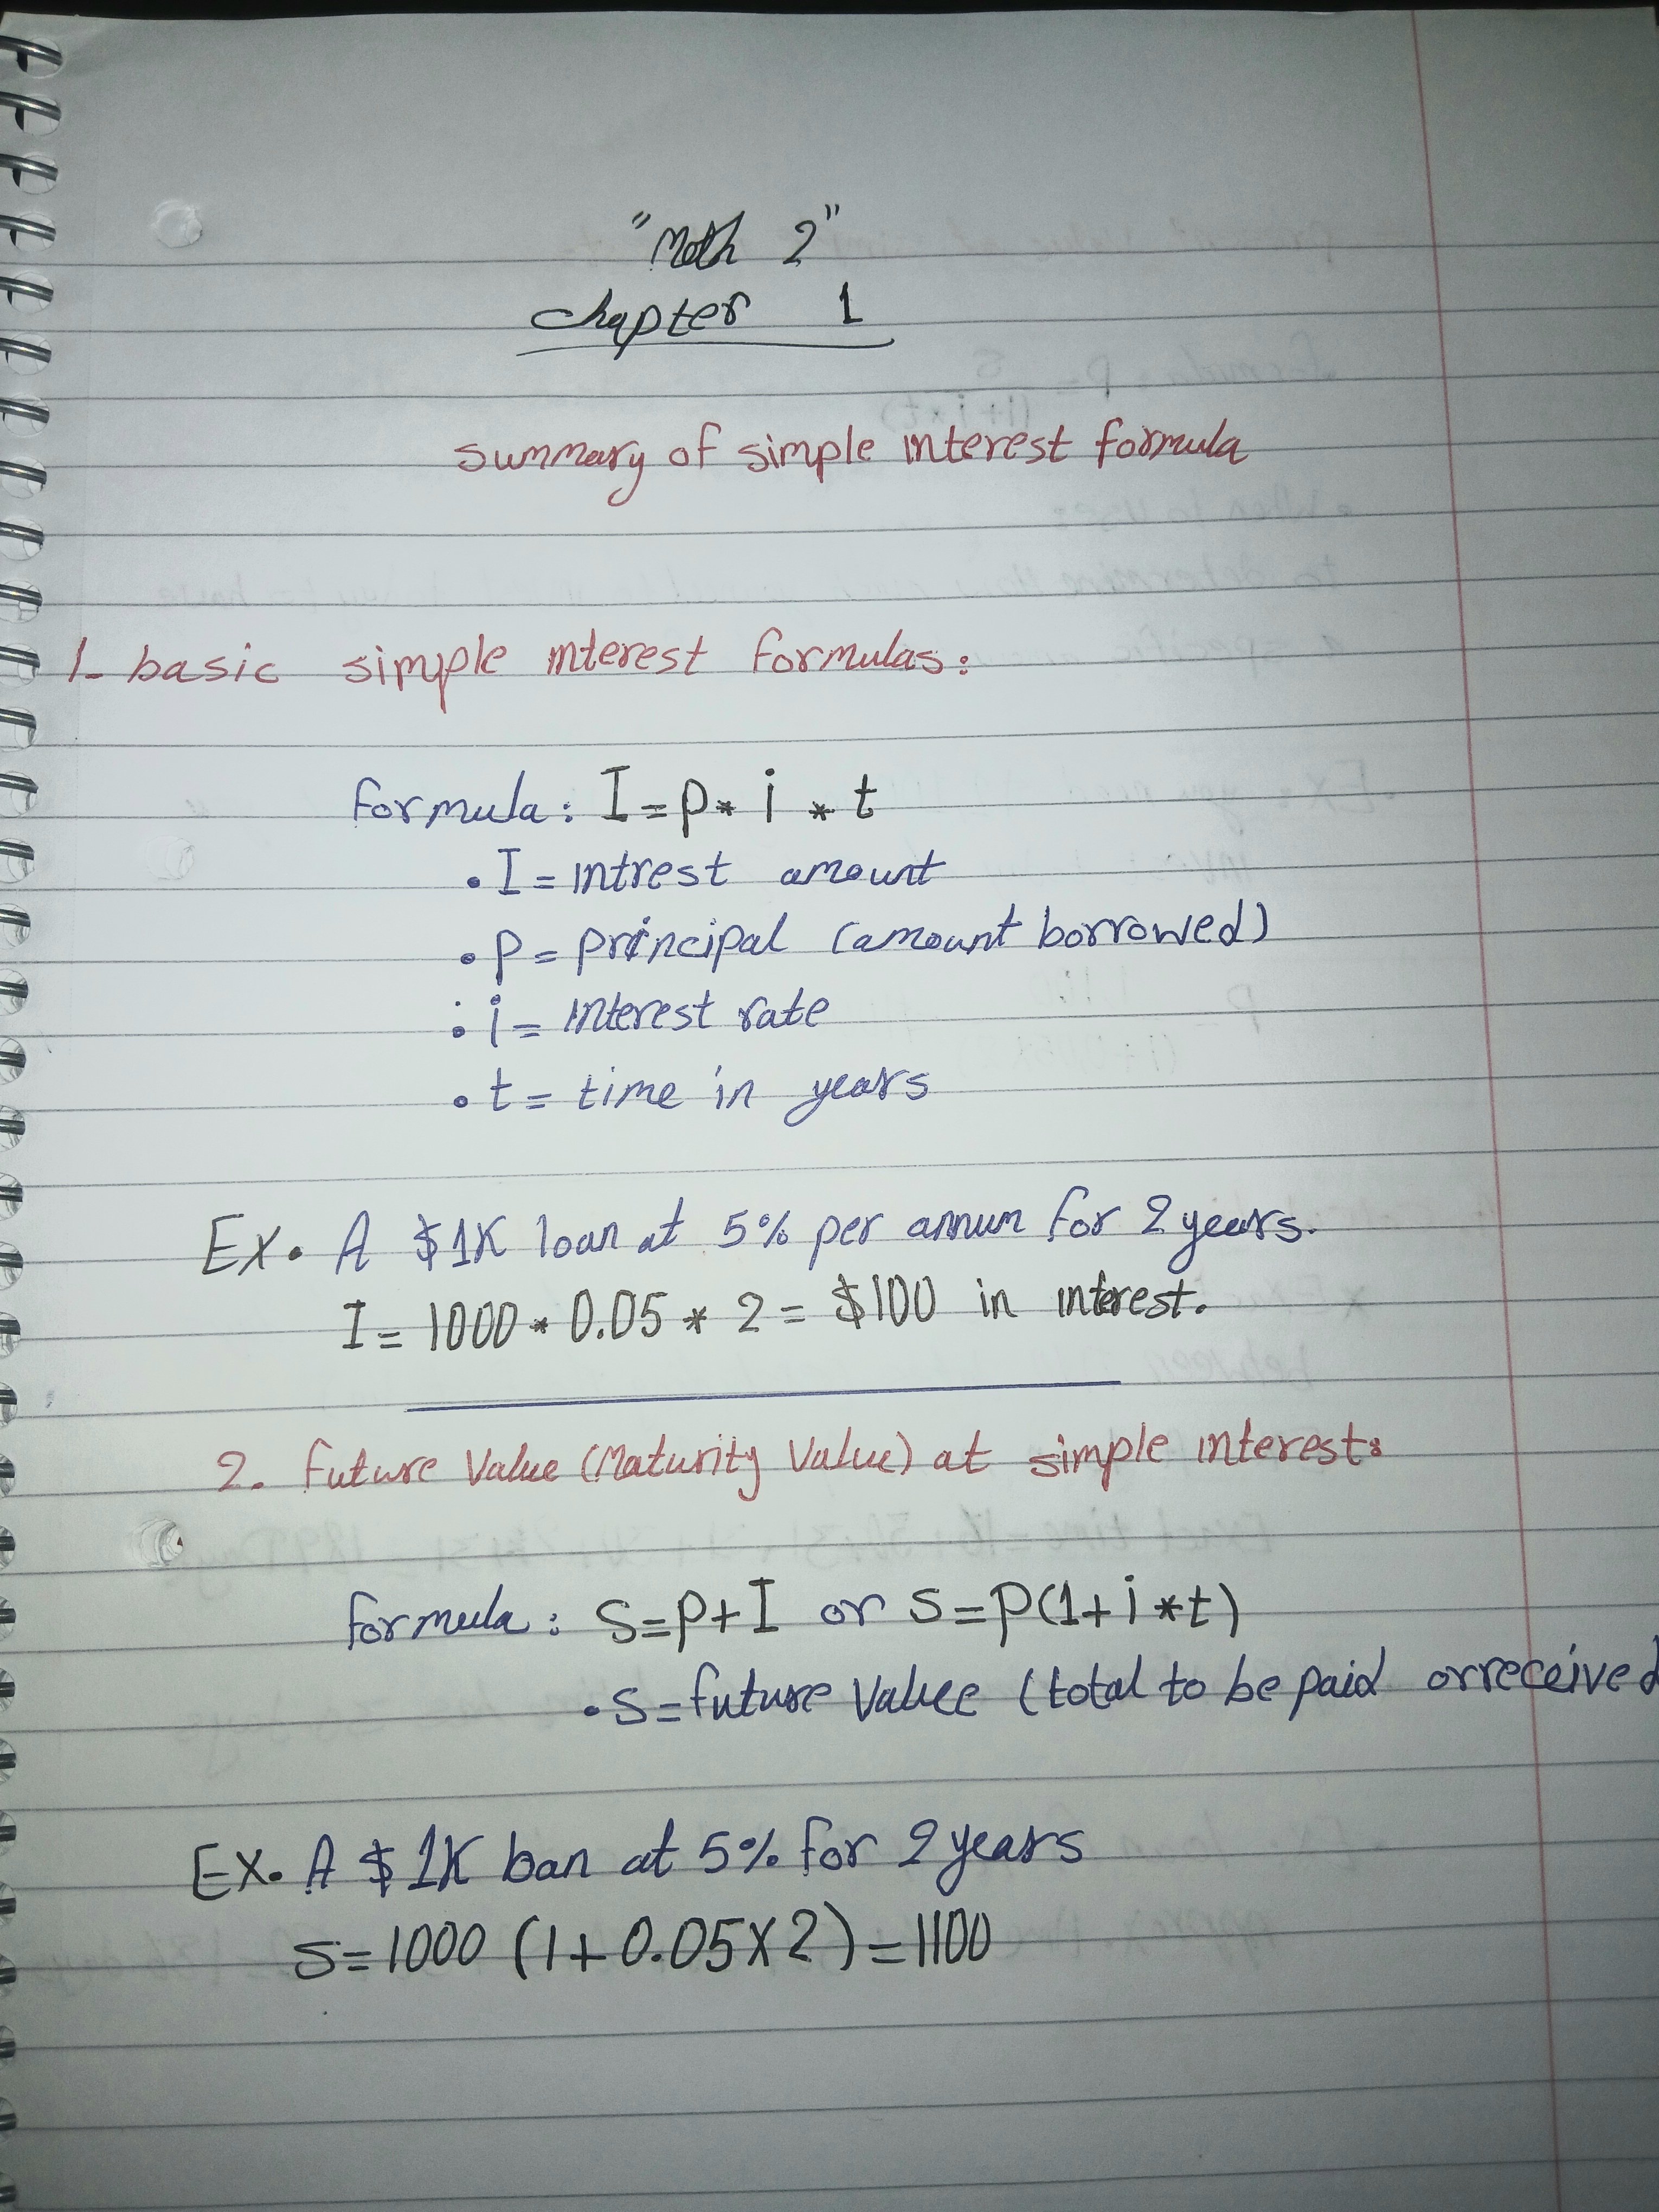 "Math 2"
chapter 1
summary of simple interest formula
1- basic simple interest formulas:
formula: I=p* i * t
• I = intrest amount
• p = principal (amount borrowed)
• i = interest rate
• t = time in years
Ex. A $1K loan at 5% per annum for 2 years.
I = 1000 * 0.05 * 2 = $100 in interest.
2. Future Value (Maturity Value) at simple interest:
formula: S=p+I or S=p(1+i*t)
• S=future Value (total to be paid or received
Ex. A $1K loan at 5% for 2 years
S=1000 (1+0.05X2)=1100